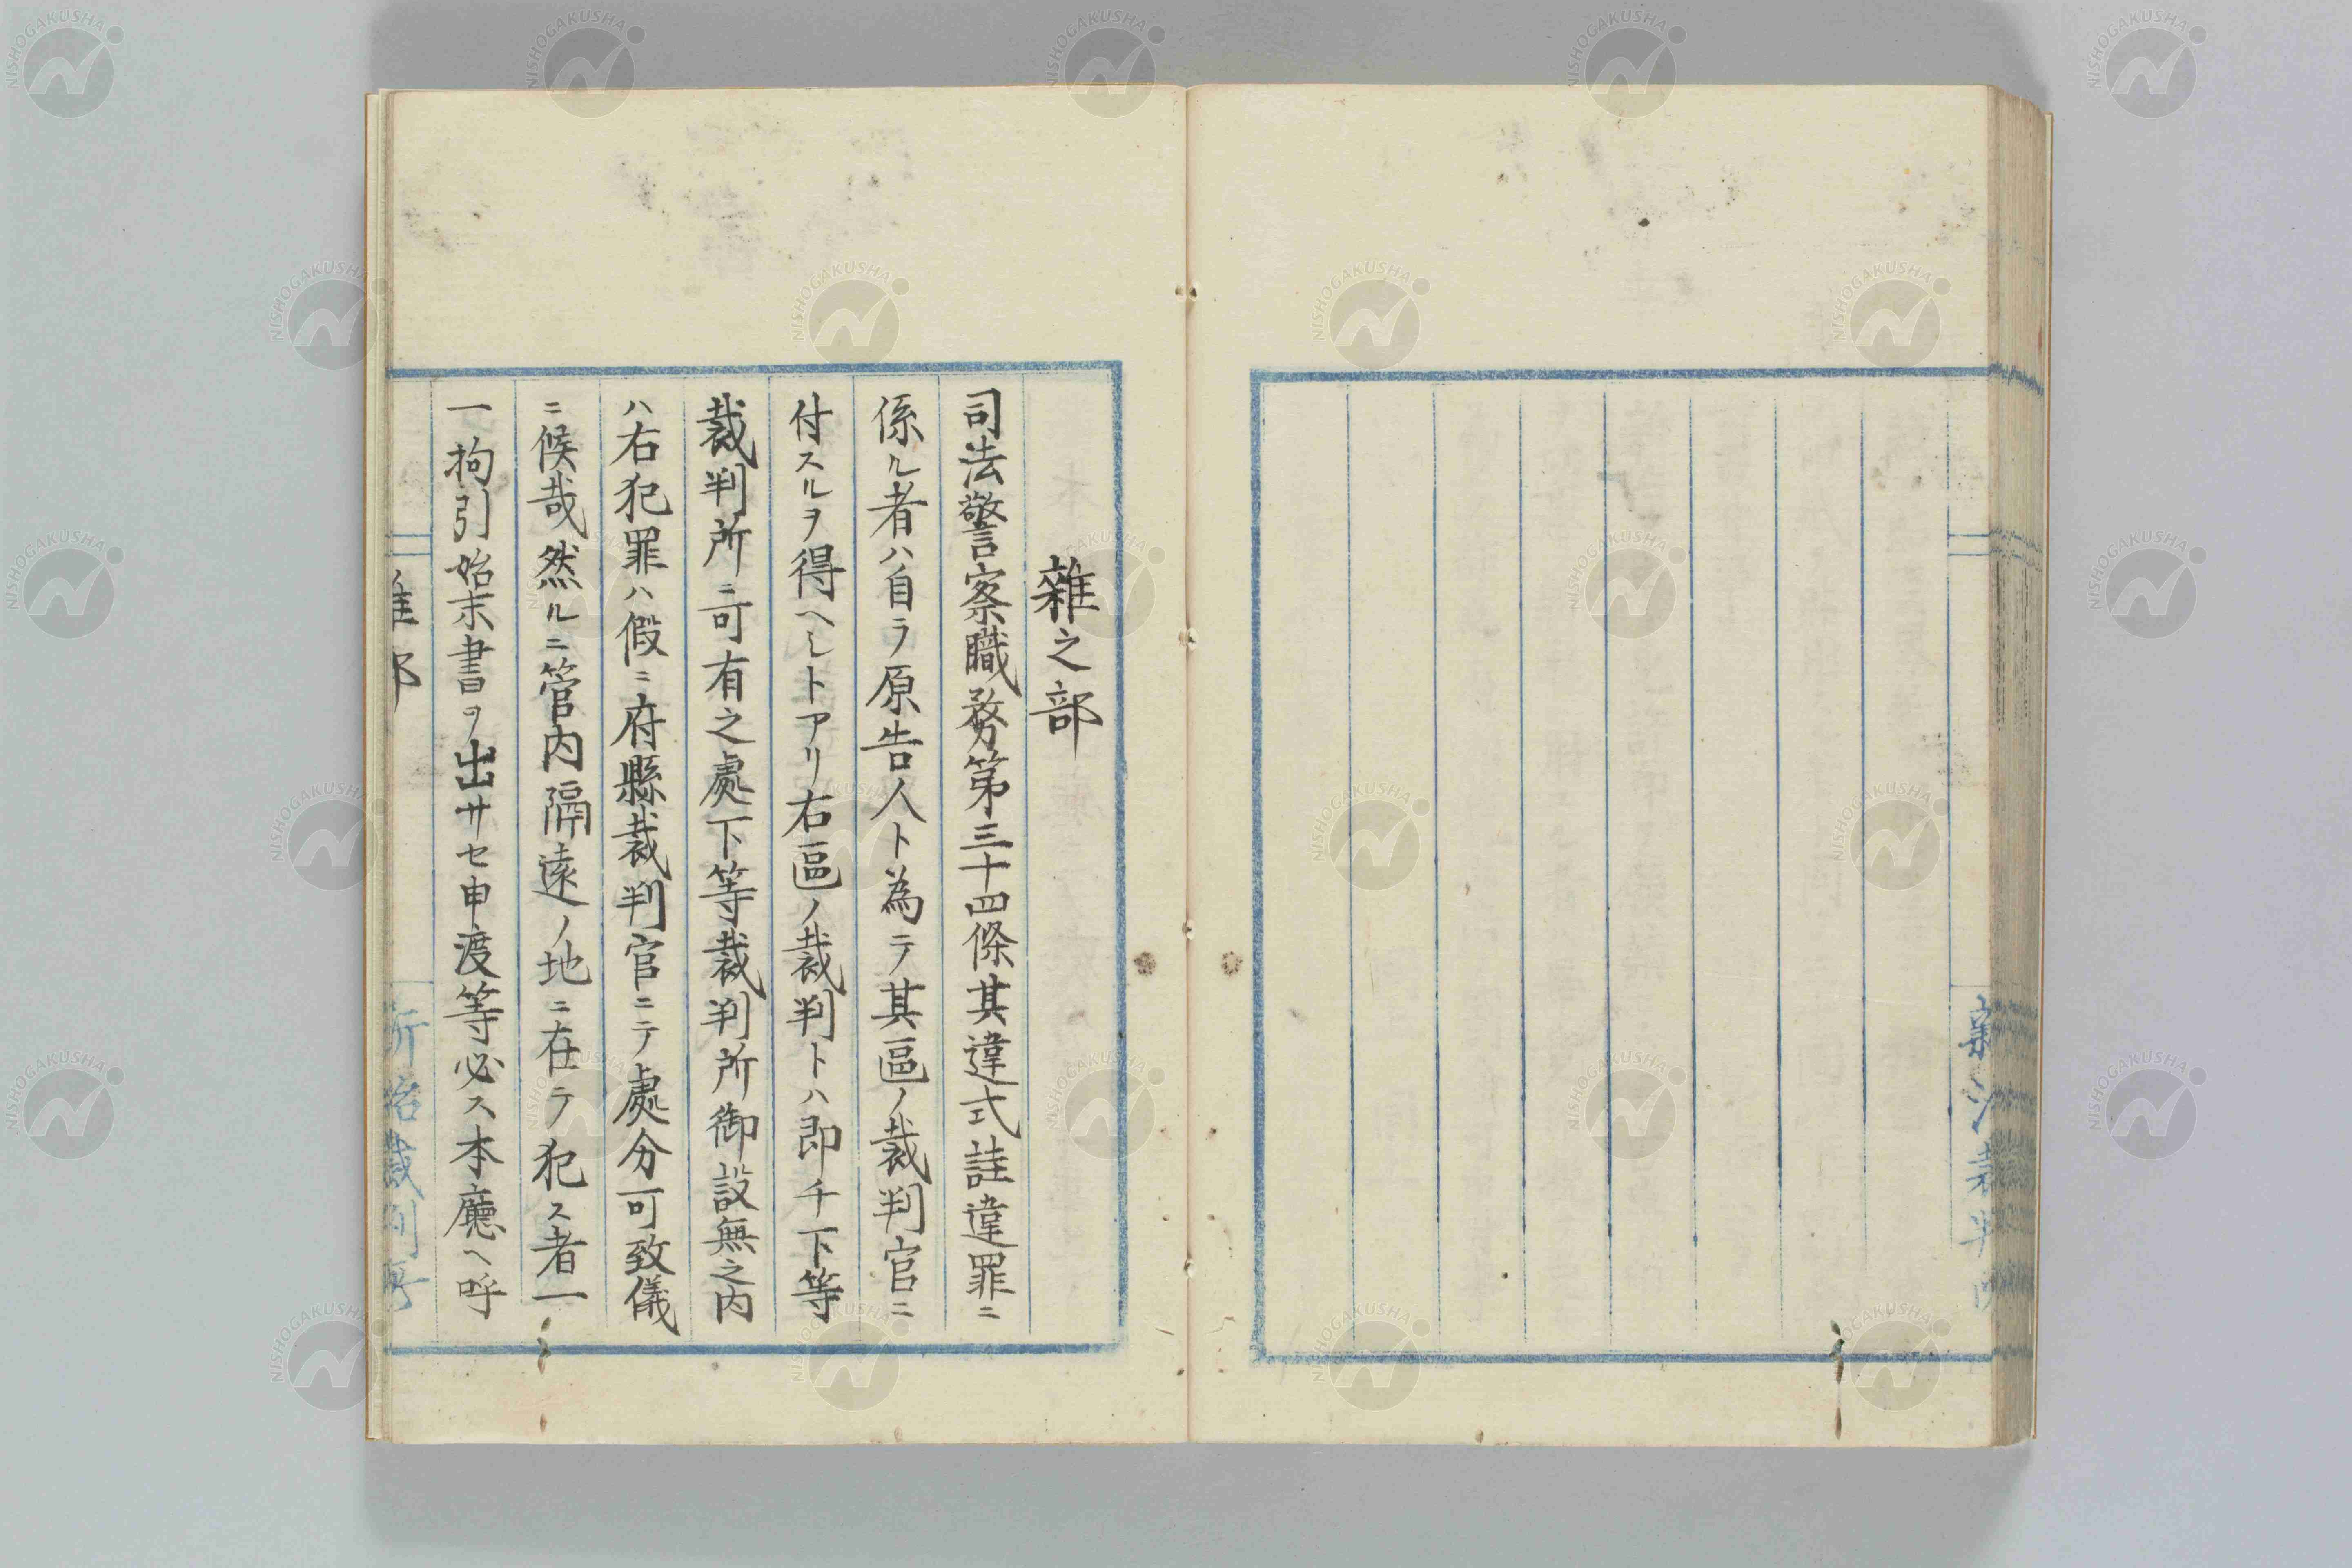 雜之部
司法警察職務第三十四條其違式詿違罪ニ
係ル者ハ自ラ原告人ト為テ其區ノ裁判官ニ
付スルヲ得ヘシトアリ右區ノ裁判トハ即チ下等
裁判所ニ可有之處下等裁判所御設無之内
ハ右犯罪ハ假ニ府縣裁判官ニテ處分可致儀
ニ候哉然ルニ管内隔遠ノ地ニ在テ犯ス者一
一拘引始末書ヲ出サセ申渡等必ス本廳ヘ呼
NISHOGAKUSHA